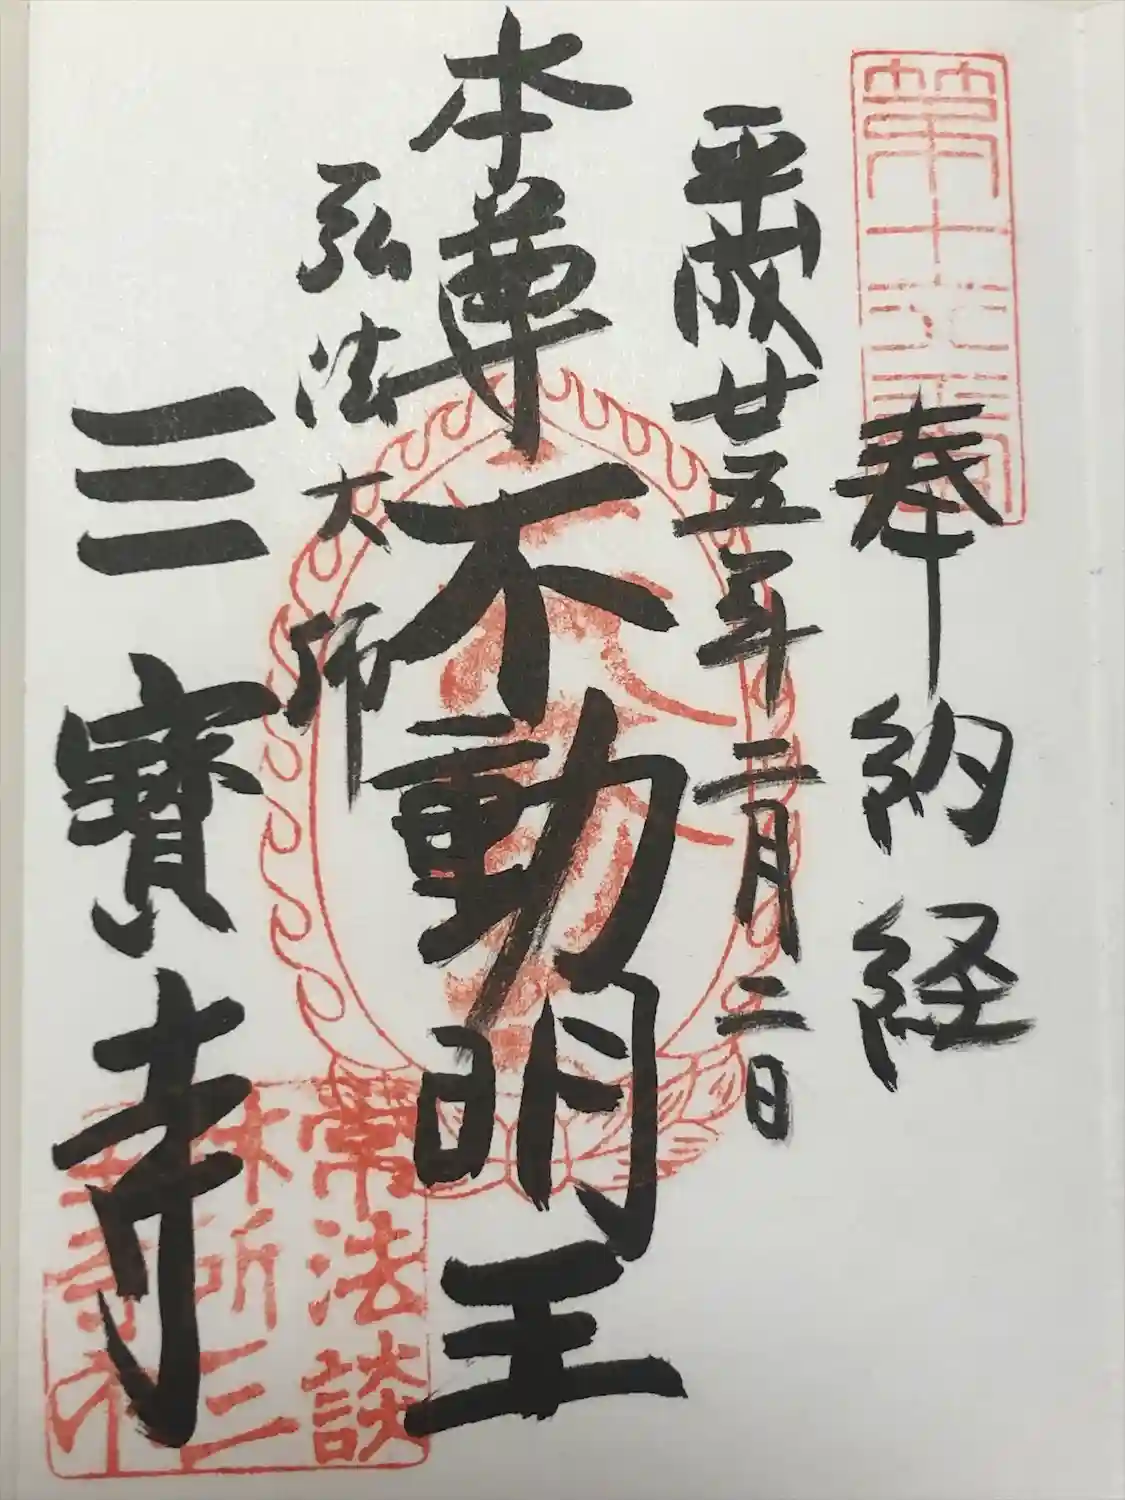 奉納経
平成廿五年二月二日
本尊不動明王
弘法大師
三寳寺
常法談
林所三